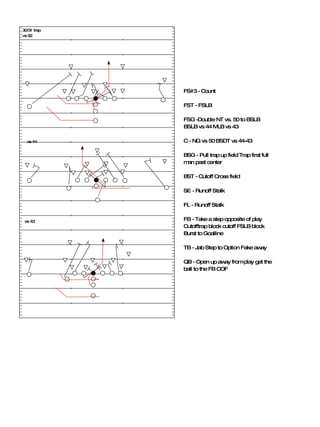 30/31 trap
vs 50
PS#3 - Count
PST - PSLB
PSG -Double NT vs. 50 to BSLB
BSLB vs 44 MLB vs 43
vs 44
C - NG vs 50 BSDT vs 44-43
BSG - Pull trap up field Trap first full
man past center
BST - Cutoff Cross field
SE - Runoff Stalk
FL - Runoff Stalk
vs 43
FB - Take a step opposite of play
Cutoff trap block cutoff PSLB block
Burst to Goalline
TB - Jab Step to Option Fake away
QB - Open up away from play get the
ball to the FB OOF